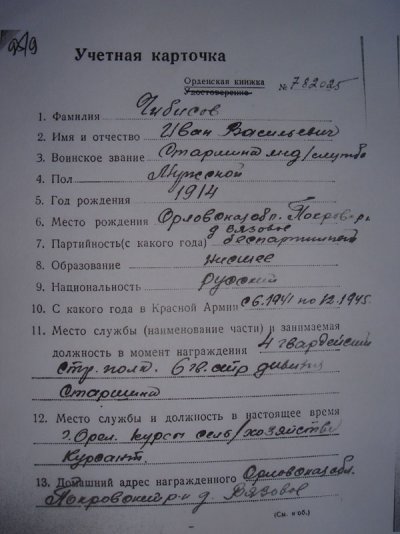 Учетная карточка
Орденская книжка
Удостоверение № 782025
1. Фамилия Чибисов
2. Имя и отчество Иван Васильевич
3. Воинское звание Старшина м/службы
4. Пол Мужской
5. Год рождения 1914
6. Место рождения Орловская обл. Покров. р-н
д Вязовое
7. Партийность(с какого года) беспартийный
8. Образование низшее
9. Национальность русский
10. С какого года в Красной Армии с 6.1941 по 12.1945
11. Место службы (наименование части) и занимаемая
должность в момент награждения 4 гвардейский
стр. полк. 6 гв. стр дивизии
Старшина
12. Место службы и должность в настоящее время
г. Орел. курсы сель/хозяйства
Курсант.
13. Домашний адрес награжденного Орловская обл.
Покровский р-н д. Вязовое
(См. н об.)